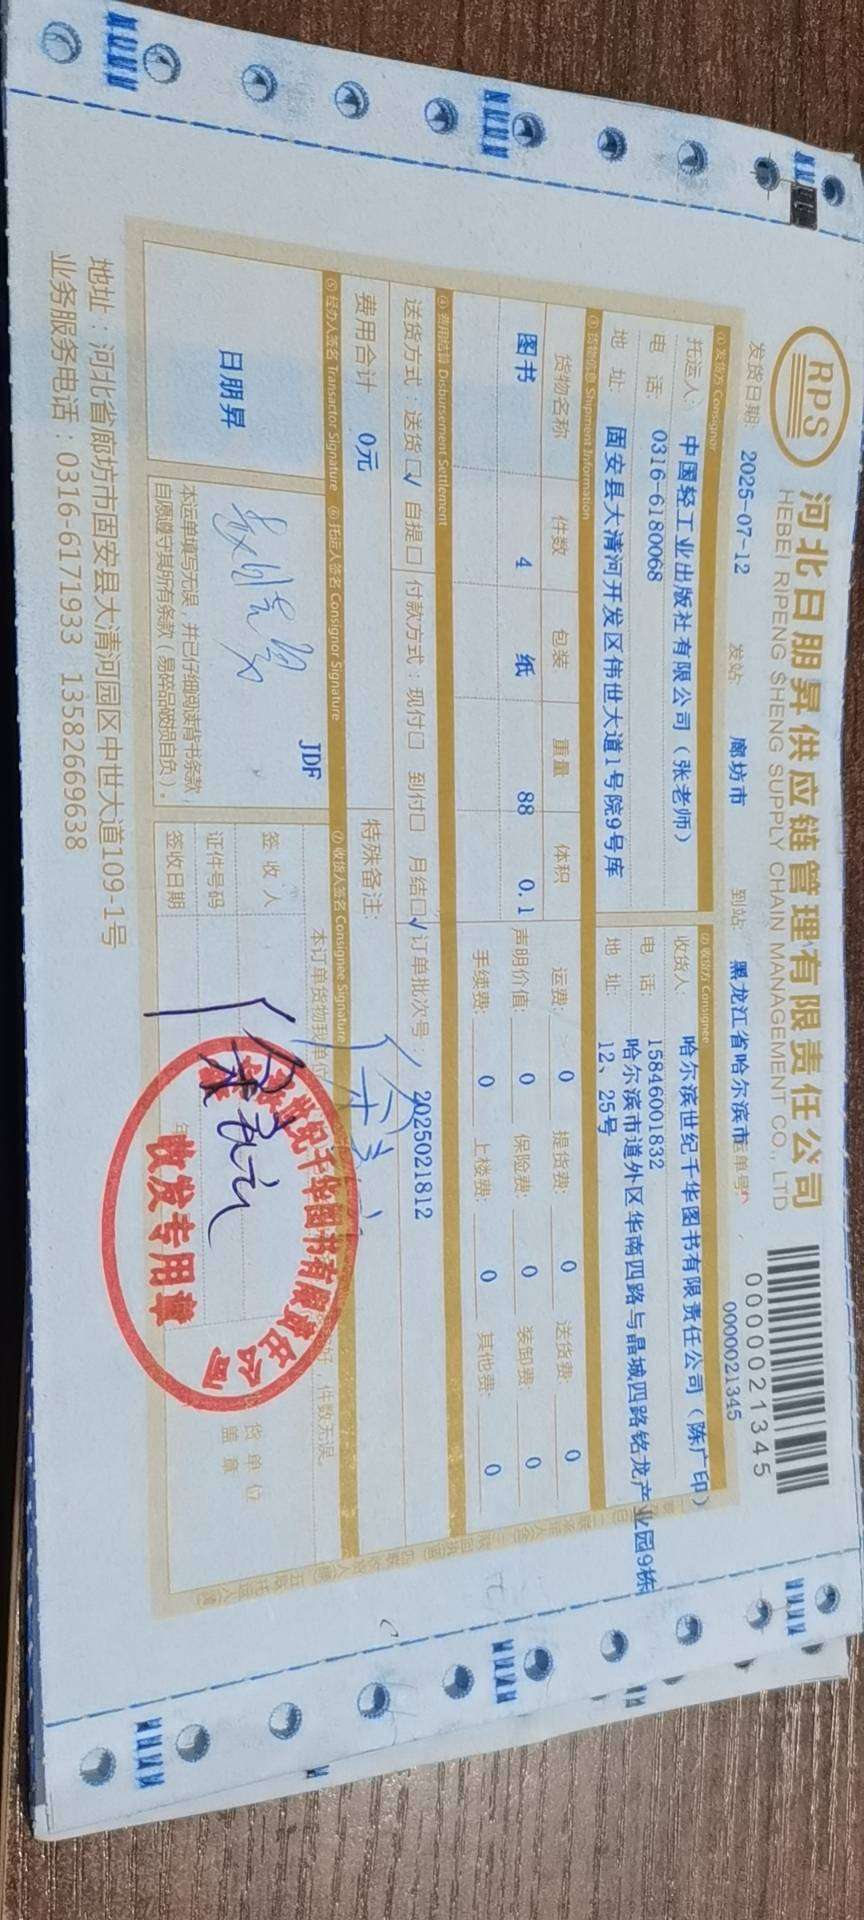 RPS
河北日朋昇供应链管理有限责任公司
HEBEI RIPENG SHENG SUPPLY CHAIN MANAGEMENT CO., LTD
0000021345
发货日期: 2025-07-12 发站: 廊坊市 到站: 黑龙江省哈尔滨市 运单号 0000021345
① 发货方 Consignor ② 收货方 Consignee
托运人: 中国轻工业出版社有限公司（张老师） 收货人: 哈尔滨世纪千华图书有限责任公司（陈广印）
电 话: 0316-6180068 电 话: 15846001832
地 址: 固安县大清河开发区伟世大道1号院9号库 地 址: 哈尔滨市道外区华南四路与晶城四路铭龙产业园9栋
12、25号
③ 货物信息 Shipment Information
货物名称 件数 包装 重量 体积 运费: 0 提货费: 0 送货费: 0
图书 4 纸 88 0.1 声明价值: 0 保险费: 0 装卸费: 0
手续费: 0 上楼费: 0 其他费: 0
④ 费用结算 Disbursement Settlement
送货方式：送货口√ 自提口 付款方式：现付口 到付口 月结口√ 订单批次号： 2025021812
费用合计 0元 特殊备注:
⑤ 经办人签名 Transactor Signature ⑥ 托运人签名 Consignor Signature ⑦ 收货人签名 Consignee Signature
日朋昇 JDF
本订单货物我单位 好，件数无误。
签收人
证件号码
签收日期
货单位
盖章
本运单填写无误，并已仔细阅读背书条款，
自愿遵守其所有条款（易碎品破损自负）。
世纪千华图书有限责任公司
收发专用章
地址：河北省廊坊市固安县大清河园区中世大道109-1号
业务服务电话：0316-6171933 13582669638